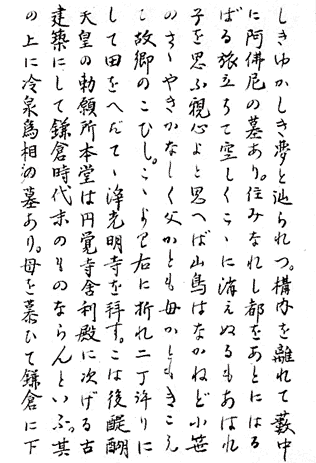 しきゆかしき夢と辿られつ。構内を離れて藪中
に阿佛尼の墓あり。住みなれし都をあとにはる
ばる旅立ちて空しくこゝに消えぬるもあはれ
子を思ふ親心よと思へば山鳥はなかねど小笹
のさゝやきかなしく父かとも母かともきこえ
て故郷のこひし。こゝより右に折れ二丁許りに
して田をへだてゝ浄光明寺を拝す。こは後醍醐
天皇の勅願所本堂は円覚寺舎利殿に次げる古
建築にして鎌倉時代末のものならんといふ。其
の上に冷泉為相の墓あり。母を慕ひて鎌倉に下